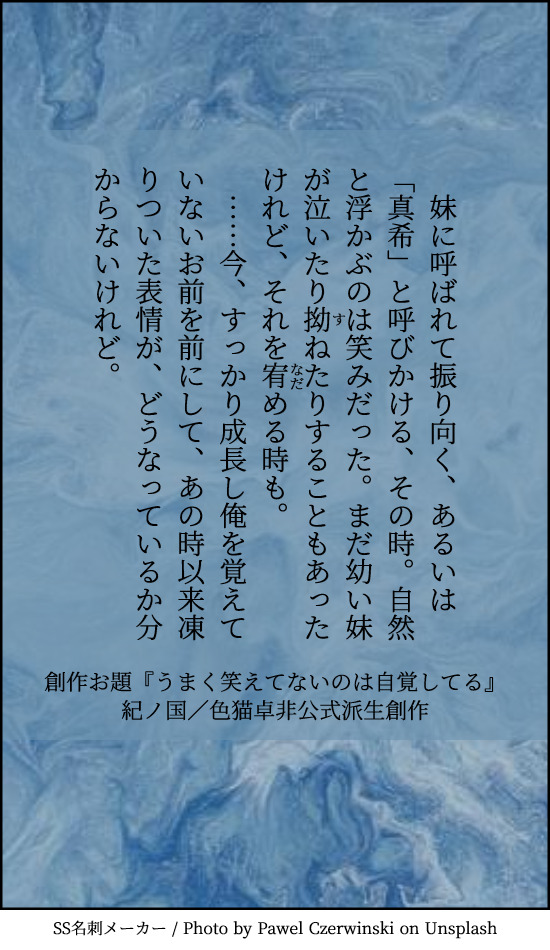 妹に呼ばれて振り向く、あるいは
「真希」と呼びかける、その時。自然
と浮かぶのは笑みだった。まだ幼い妹
が泣いたり拗ねたりすることもあった
す
けれど、それを宥める時も。
なだ
　……今、すっかり成長し俺を覚えて
いないお前を前にして、あの時以来凍
りついた表情が、どうなっているか分
からないけれど。
創作お題『うまく笑えてないのは自覚してる』
紀ノ国／色猫卓非公式派生創作
SS名刺メーカー / Photo by Pawel Czerwinski on Unsplash